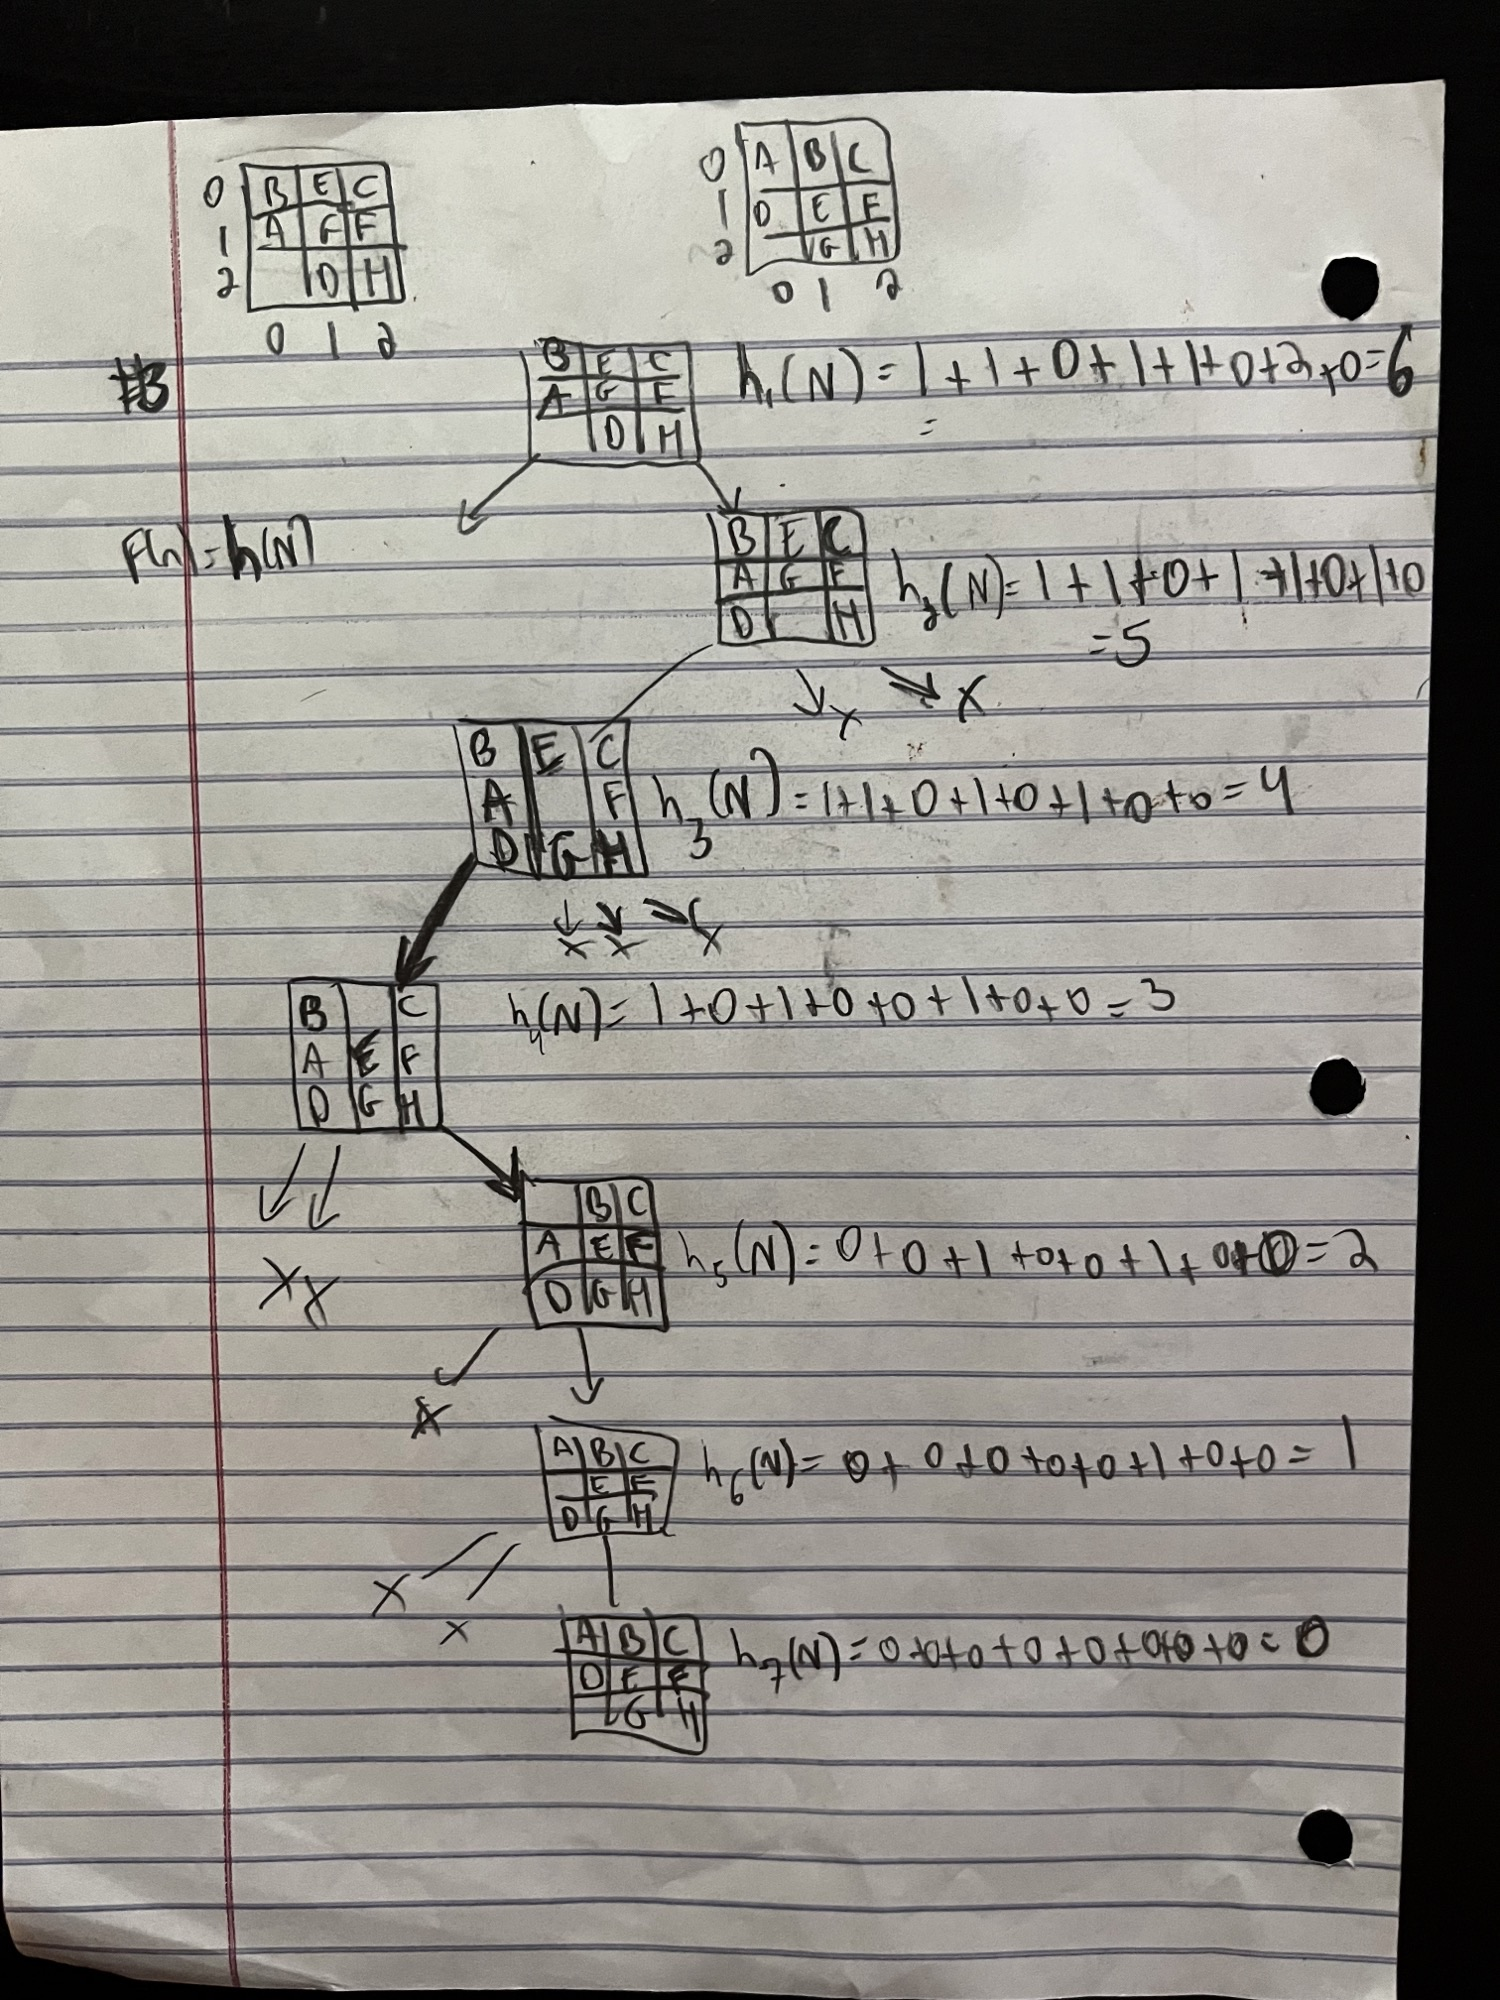 0 B E C
1 A G F
2 D H
0 1 2
0 A B C
1 D E F
2 G H
0 1 2
#3
B E C
A G F
D H
h₁(N) = 1+1+0+1+1+0+2+0=6
=
F(n) = h(N)
B E C
A G F
D H
h₂(N)= 1+1+0+1+1+0+1+0
=5
X X
B E C
A F
D G H
h₃(N)=1+1+0+1+0+1+0+0=4
X X X
B C
A E F
D G H
h₄(N)= 1+0+1+0+0+1+0+0=3
X X
B C
A E F
D G H
h₅(N)=0+0+1+0+0+1+0+0=2
X
A B C
E F
D G H
h₆(N)= 0+0+0+0+0+1+0+0=1
X
X
A B C
D E F
G H
h₇(N)=0+0+0+0+0+0+0+0=0